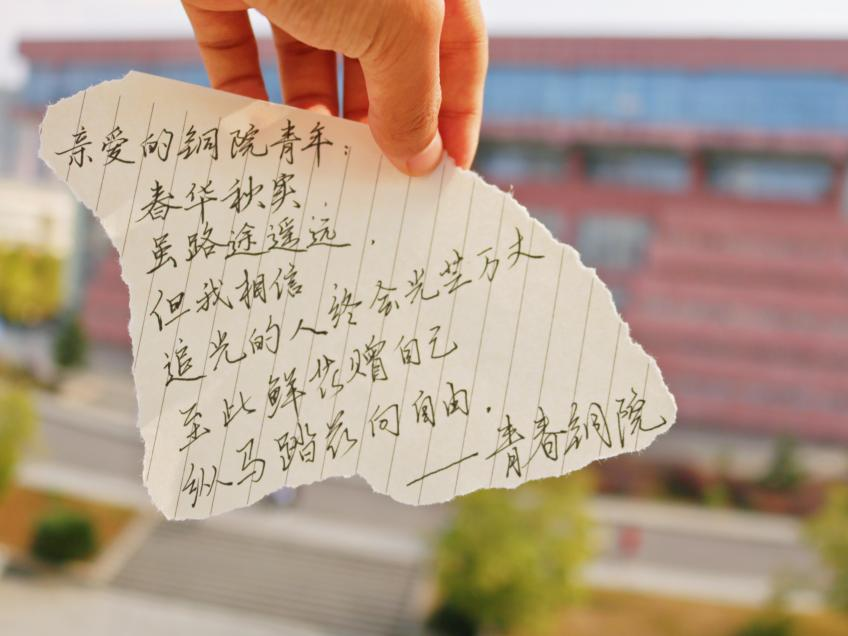 亲爱的铜院青年：
春华秋实，
虽路途遥远，
但我相信
追光的人终会光芒万丈
至此鲜花赠自己
纵马踏花向自由.
——青春铜院